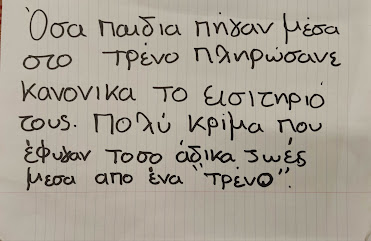 Όσα παιδια πήγαν μέσα
στο τρένο πληρώσανε
κανονικα το εισιτηριό
τους. Πολύ κρίμα που
έφυγαν τοσο άδικα ζωές
μεσα απο ένα "τρένο".